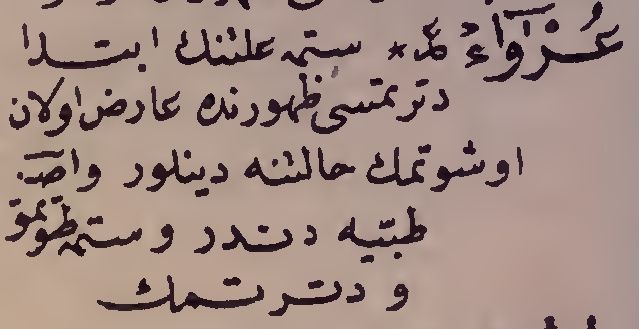 عُرَوَآءُ * ستمه علتنك ابتدا
دترتمسى ظهورنده عارض اولان
اوشوتمك حالتنه دينلور واصحّ
طبّيه دندر و ستمه طوتمق
و دترتمك